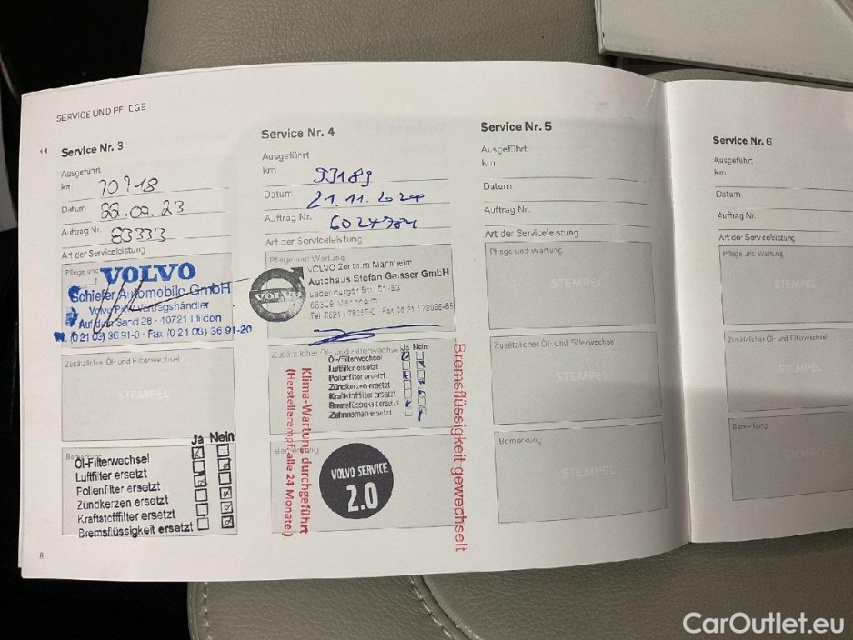 SERVICE UND PFLEGE
Service Nr. 3
Ausgeführt
km 70718
Datum 22.09.23
Auftrag Nr. 83333
Art der Serviceleistung
Pflege und
VOLVO
Schiefer Automobile GmbH
Volvo PKW-Vertragshändler
Auf dem Sand 28 - 40721 Hilden
(0 21 03) 36 91-0 - Fax (0 21 03) 36 91-20
Zusätzlicher Öl- und Filterwechsel
STEMPEL
Bemerkung
Ja Nein
Öl-/Filterwechsel
Luftfilter ersetzt
Pollenfilter ersetzt
Zündkerzen ersetzt
Kraftstofffilter ersetzt
Bremsflüssigkeit ersetzt
8
Service Nr. 4
Ausgeführt
km 93189
Datum 21.11.2024
Auftrag Nr. 6024784
Art der Serviceleistung
Pflege und Wartung
VOLVO Zentrum Mannheim
Autohaus Stefan Geisser GmbH
VOLVO
Zusätzlicher Öl- und Filterwechsel
Ja Nein
Öl-/Filterwechsel
Luftfilter ersetzt
Pollenfilter ersetzt
Zündkerzen ersetzt
Kraftstofffilter ersetzt
Bremsflüssigkeit ersetzt
Zahnriemen ersetzt
Bemerkung
VOLVO SERVICE
2.0
Klima-Wartung durchgeführt
(Herstellerempf. alle 24 Monate)
Bremsflüssigkeit gewechselt
Service Nr. 5
Ausgeführt
km
Datum
Auftrag Nr.
Art der Serviceleistung
Pflege und Wartung
STEMPEL
Zusätzlicher Öl- und Filterwechsel
STEMPEL
Bemerkung
STEMPEL
Service Nr. 6
Ausgeführt
km
Datum
Auftrag Nr.
Art der Serviceleistung
Pflege und Wartung
STEMPEL
Zusätzlicher Öl- und Filterwechsel
STEMPEL
Bemerkung
STEMPEL
CarOutlet.eu